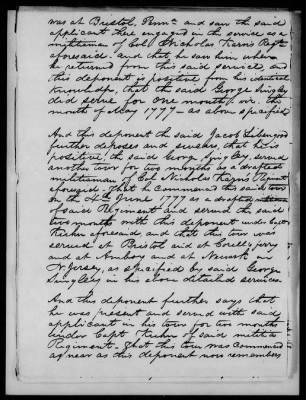 was at Bristol, Penna and saw the said
applicant there engaged in the service as a
militiaman of Col Nicholas Kerns Regt
aforesaid. and that he saw him when
he returned from this said service, and
this deponent is positive from his identical
knowledge, that the said George Singley
did serve for one month, viz. the
month of May 1777 - as above specified
And this deponent the said Jacob
further deposes and swears, that he is
positive, the said George Singley, served
another tour for two months as a drafted
militiaman of Col Nicholas Kerns Regiment
aforesaid. That he commenced this said tour
on the 4th June 1777 as a drafted militiaman
of said Regiment and served the said
two months with this deponent under Capt
aforesaid and that this tour was
served at Bristol and at Coells ferry
and at Amboy and at Newark in
N Jersey, as specified by said George
Singley in his above detailed services.
And this deponent further says that
he was present and served with said
applicant in his tour for two months
under Capt of said militia
Regiment - That this tour was commenced
as near as this deponent now remembers